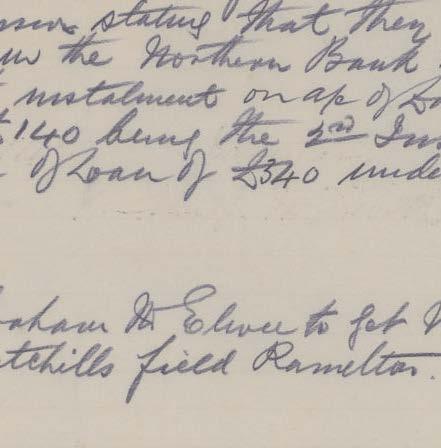 stating that they
the Northern Bank
instalment on a/c of
£140 being the 2nd Ins
of Loan of £340 unde
raham McElwee to get
tchills field Ramelton.